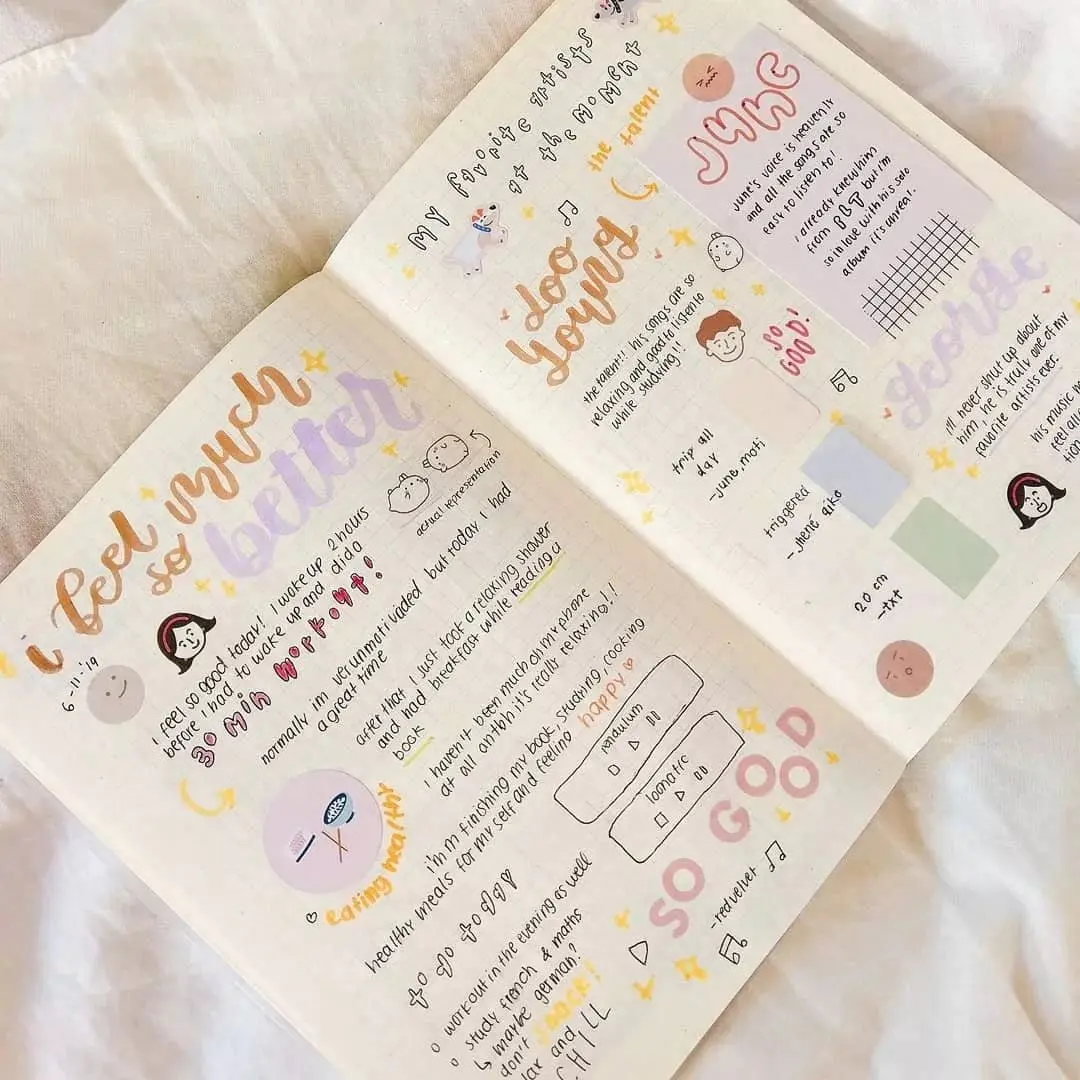 i feel much
so better
6-11-'19
actual representation
I feel so good today! I wake up 2 hours
before I had to wake up and did a
30 min workout!
normally im verunmotivaded but today I had
a great time
after that I just took a relaxing shower
and had breakfast while reading a
book
I haven't been much on my phone
at all
it's really relaxing!!
i'm finishing my book, studying, cooking
healthy meals for my self and feeling
happy
eating healthy
to do today
workout in the evening as well
study french & maths
↳ maybe german?
don't SNACK!
and
CHILL
pendulum
SO GOOD
-red velvet
my favorite artists
at the moment
the talent
doo
young
the talent!! his songs are so
relaxing and good to listen to
while studying!!
JUNE
june's voice is heavenly
and all the songs are so
easy to listen to!
i already knew him
from but i'm
so in love with his solo
album it's unreal.
SO
GOOD!
george
I'll never shut up about
him, he is truly one of my
favorite artists ever.
his music
feel all
trip all
day
-june, moti
triggered
-jhené aiko
20 cm
-txt